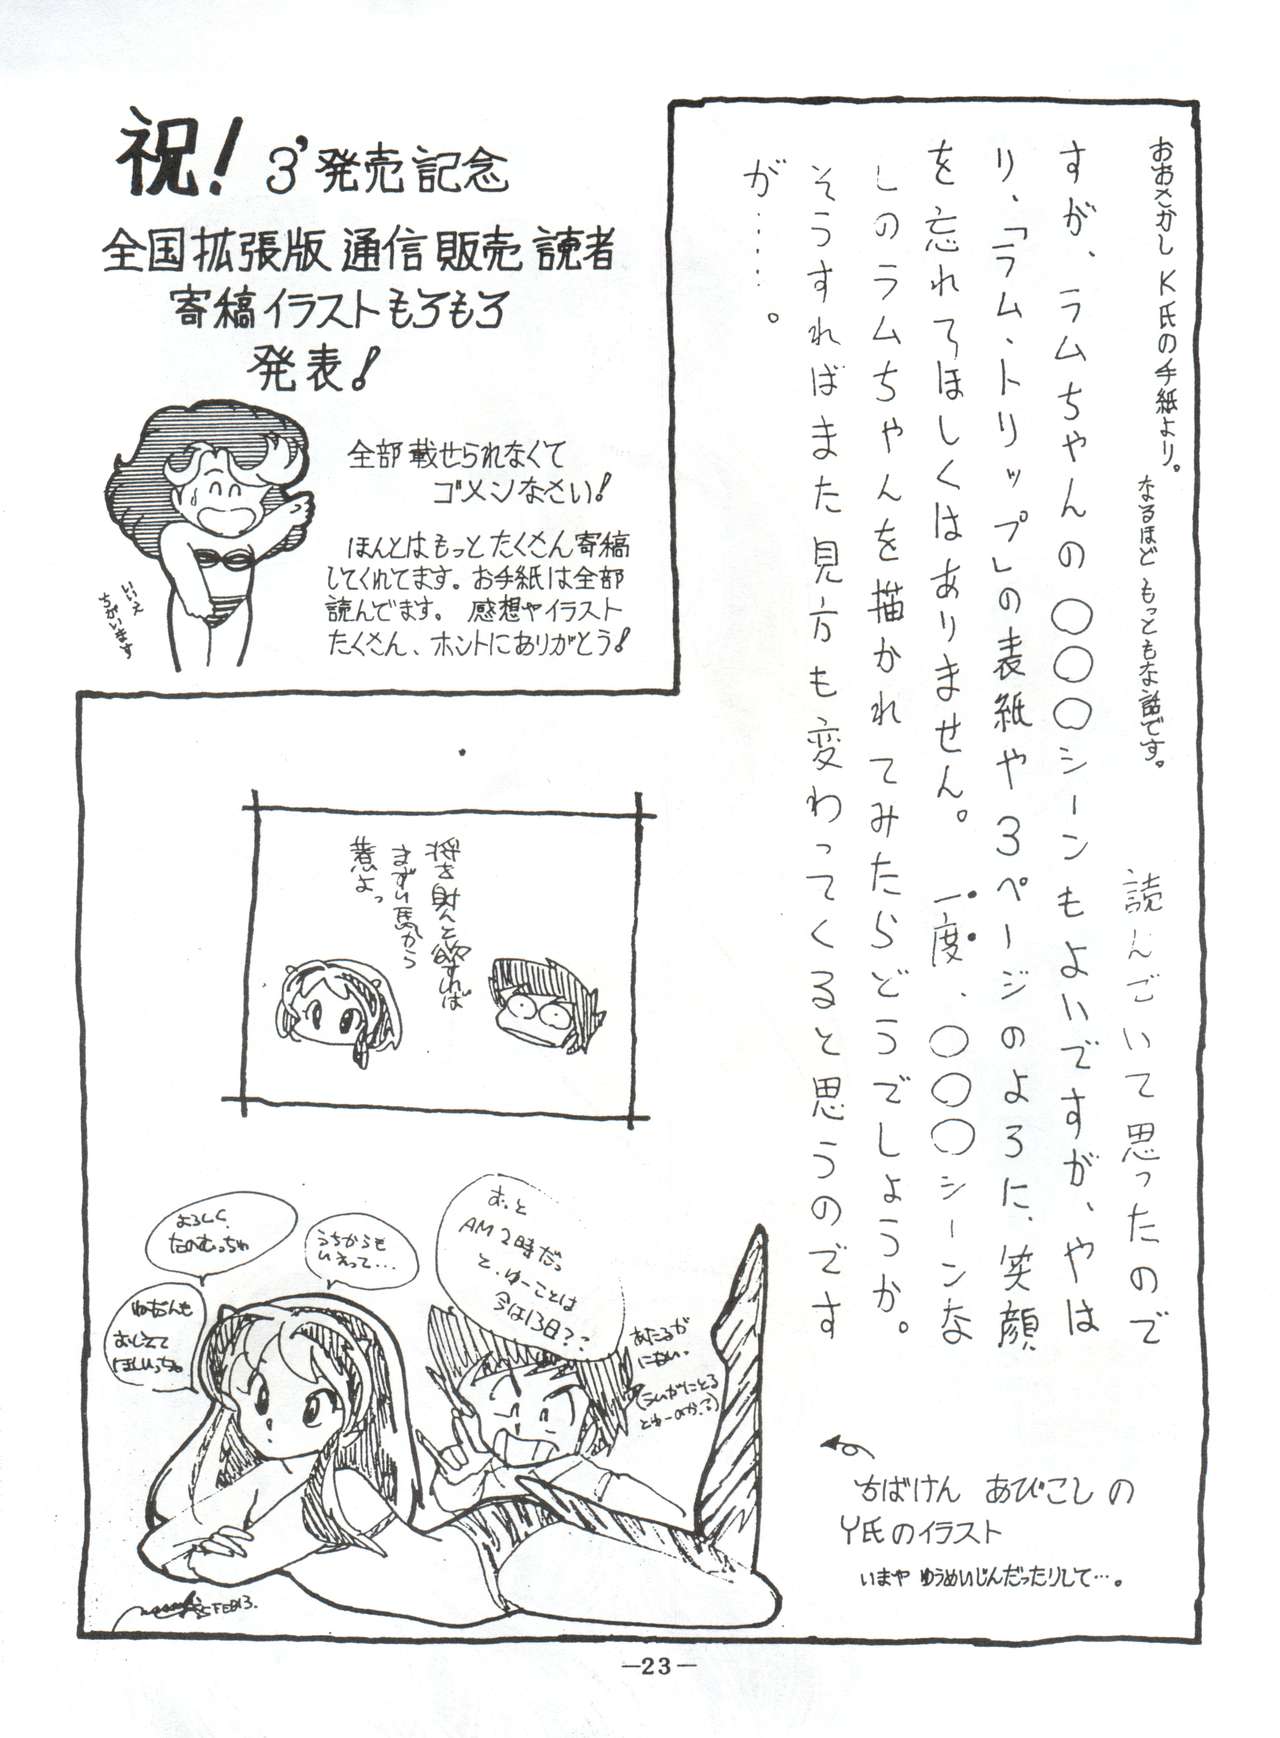 祝! 3'発売記念
全国拡張版 通信販売 読者
寄稿イラストもろもろ
発表!
全部載せられなくて
ゴメンなさい!
ほんとはもっとたくさん寄稿
してくれてます。お手紙は全部
読んでます。 感想やイラスト
たくさん、ホントにありがとう!
いいえ
ちがいます
おおさかし K氏の手紙より。
なるほど もっともな話です。
読んでいて思ったので
すが、ラムちゃんの〇〇〇シーンもよいですが、やは
り、「ラム・トリップ」の表紙や3ページのように、笑顔
を忘れてほしくはありません。 一度、〇〇〇シーンな
しのラムちゃんを描かれてみたらどうでしょうか。
そうすればまた見方も変わってくると思うのです
が……。
将を射んと欲すれば
まずい馬から
煮よっ
よろしく
たのむっちゃ
うちからも
いえって…
おしえて
ほしいっちゃ
おっと
AM2時だっ
と、ゆーことは
今は13日??
あたるが
にない..
ちばけん あびこしの
Y氏のイラスト
いまや ゆうめいじんだったりして…。
FEB13.
—23—